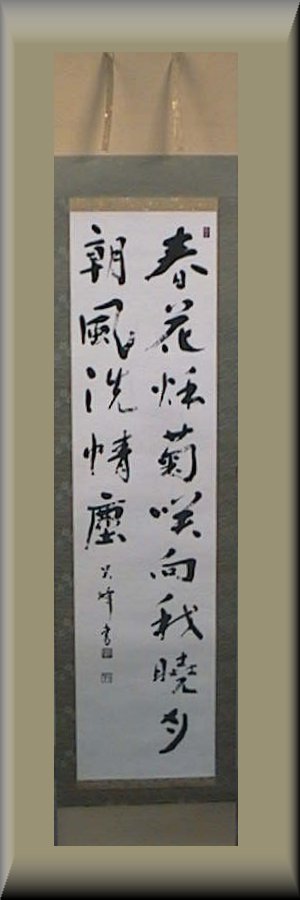 春花秌菊咲向我曉月
朝風洗情塵
峰書